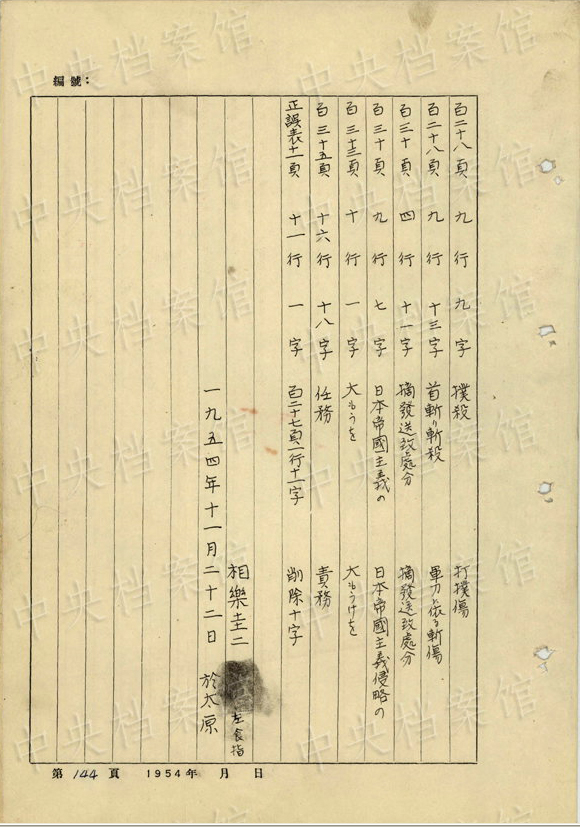 編號：
百二十八頁 九行 九字 撲殺 打撲傷
百二十八頁 九行 十三字 首斬り斬殺 軍刀ニ依る斬傷
百三十頁 四行 十一字 摘發送致處分 摘發送致處分
百三十頁 九行 七字 日本帝國主義の 日本帝國主義侵略の
百三十三頁 十行 一字 大もうを 大もうけを
百三十五頁 十六行 十八字 任務 責務
正誤表十一頁 十一行 一字 百二十七頁一行十一字 削除十字
相樂圭二 左食指
一九五四年十一月二十二日 於太原
第144頁 1954年 月 日
中央档案馆